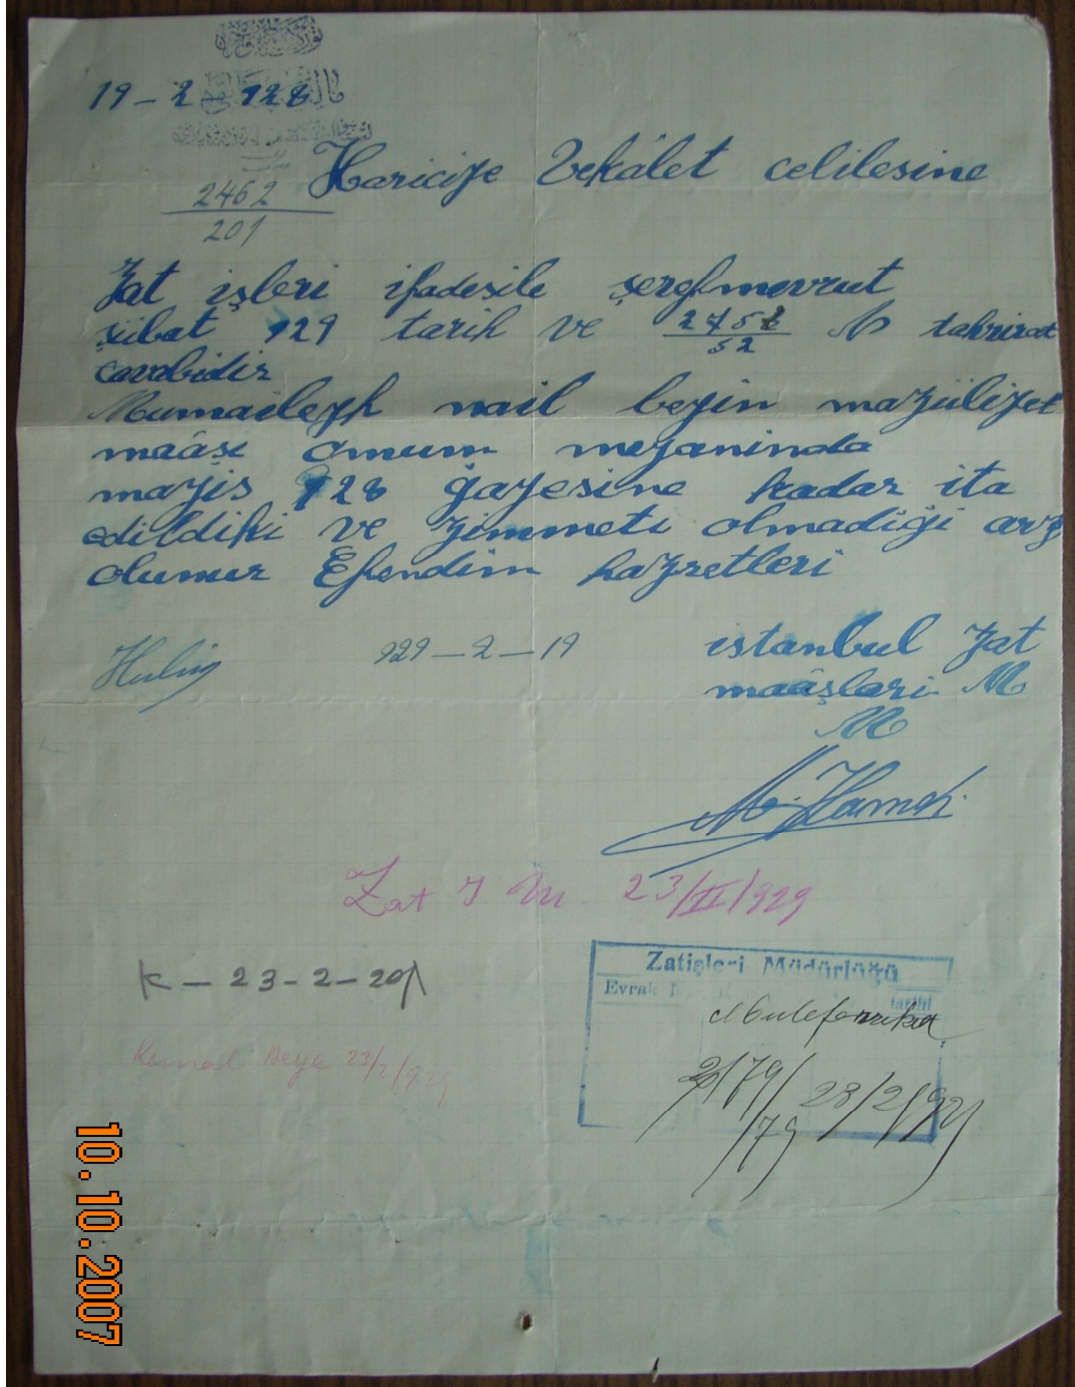 19 – 2 928
2462
201
Hariciye Vekâlet celilesine
Zat işleri ifadesile şerefmevrut
şübat 929 tarih ve 2752/52 N tahrirat
cavabidir
Mumaileyh nail beyin mazüliyet
maâşı omum meyanında
mayis 928 ğayesine kadar ita
edildiki ve zimmeti olmadiği arz
olunur Efendim hazretleri
929 – 2 – 19
istanbul Zat
maâşlari M
M
Zat I M. 23/II/929
K – 23 - 2 - 
Kemal Beye 23/2/929
Zatişleri Müdürlüğü
Evrak
tarihi
Müteferrika
/79
/79
10.10.2007